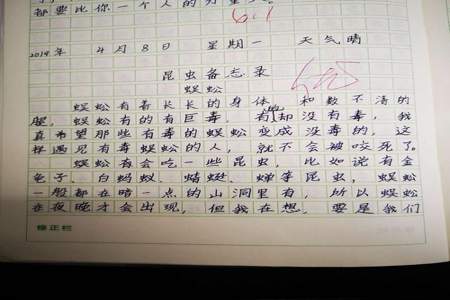 都要比你一个人的力量大。
6.1
2019年 4月8日 星期一 天气晴
昆虫备志录
蜈蚣
蜈蚣有着长长的身体,和数不清的
腿。蜈蚣有的有巨毒,有的却没有毒,我
真希望那些有毒的蜈蚣变成没毒的,这
样遇见有毒蜈蚣的人,就不会被咬死了。
蜈蚣有会吃一些昆虫,比如说有金
龟子、白蚂蚁、蜻蜓、蝉等昆虫,蜈蚣
一般都在暗一点的山洞里有,所以蜈蚣
在夜晚才会出现,但我在想,要是我们
修正栏